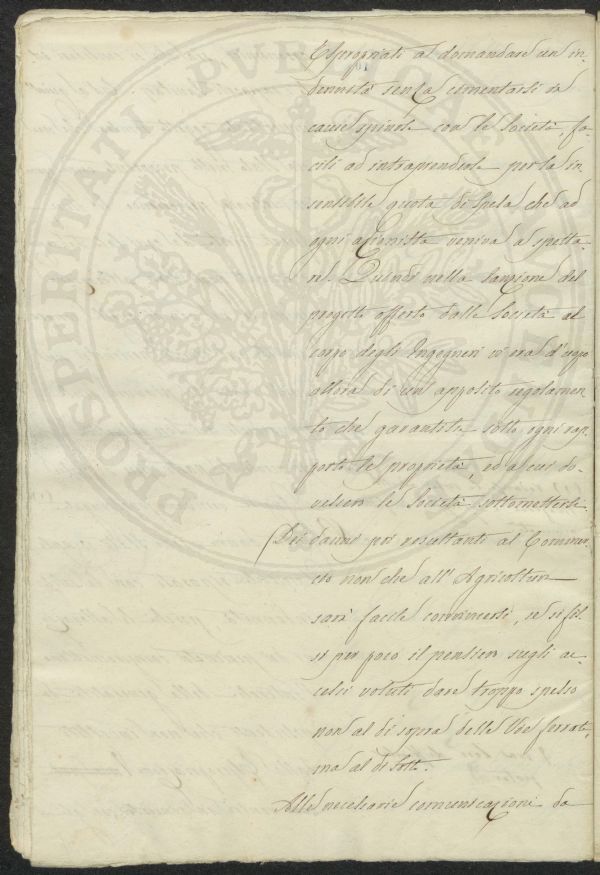 Espropriati al domandare un in-
dennità senza cimentarsi in
cause spinose con le Società, fa-
cili ad intraprenderle per la in
sensibile quota di spesa che ad
ogni azionista veniva a spetta-
re. Quindi nella sanzione del
progetto offerto dalle Società al
corpo degli Ingegneri vi era d'uopo
allora di un' apposito regolamen-
to che garantita sotto ogni rap-
porto le proprietà, ed a cui do-
vessero le Società sottomettersi.
Dei danni poi resultanti al Commer-
cio non che all' Agricoltura
sarà facile convincersi, se si fis-
si per poco il pensiero sugli ac-
cessi voluti dare troppo spesso
non al di sopra delle Vie ferrate,
ma al di sotto.
Alle necessarie comunicazioni da
PROSPERITATI PVBLICAE